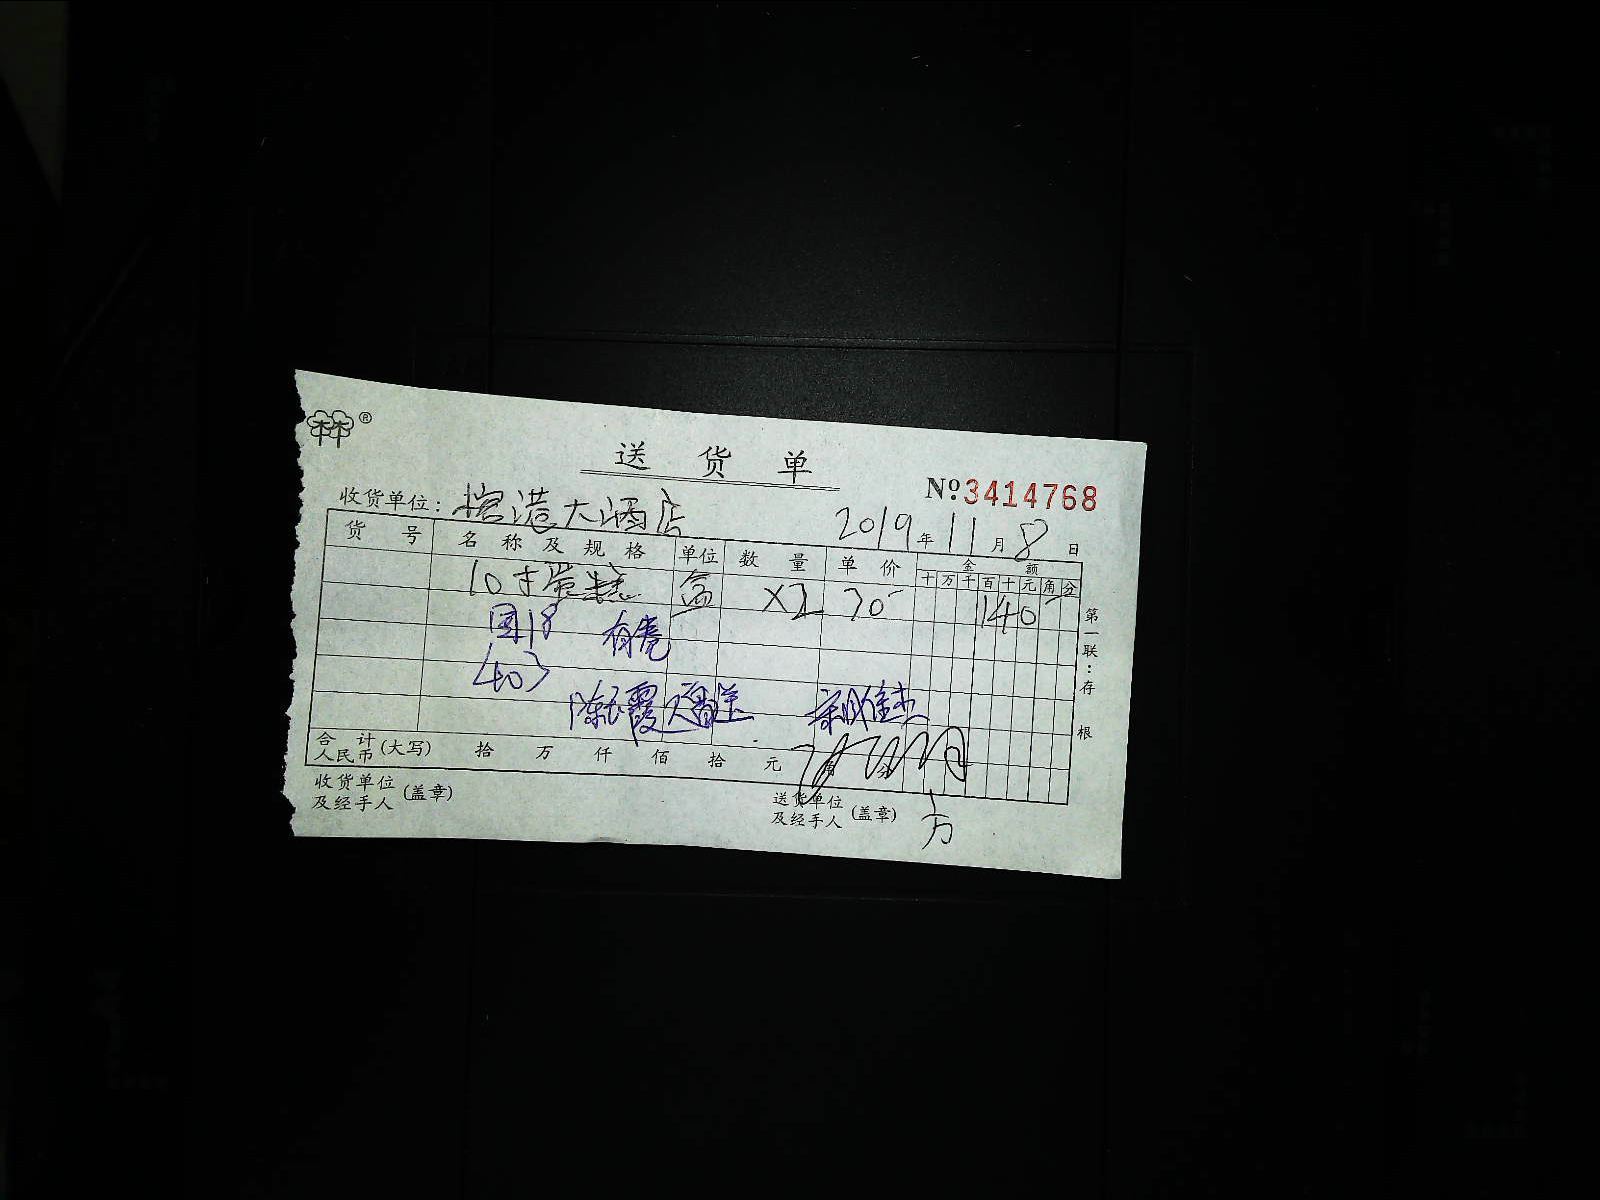 林林®
送货单
№3414768
收货单位: 大酒店
2019年11月8日
货号 名称及规格 单位 数量 单价 金额
十万千百十元角分
10寸蛋糕 盒 x2 70 140
团18
403
陈 霞
合计人民币(大写) 拾 万 仟 佰 拾 元 角 分
收货单位及经手人(盖章)
送货单位及经手人(盖章)
第一联:存根